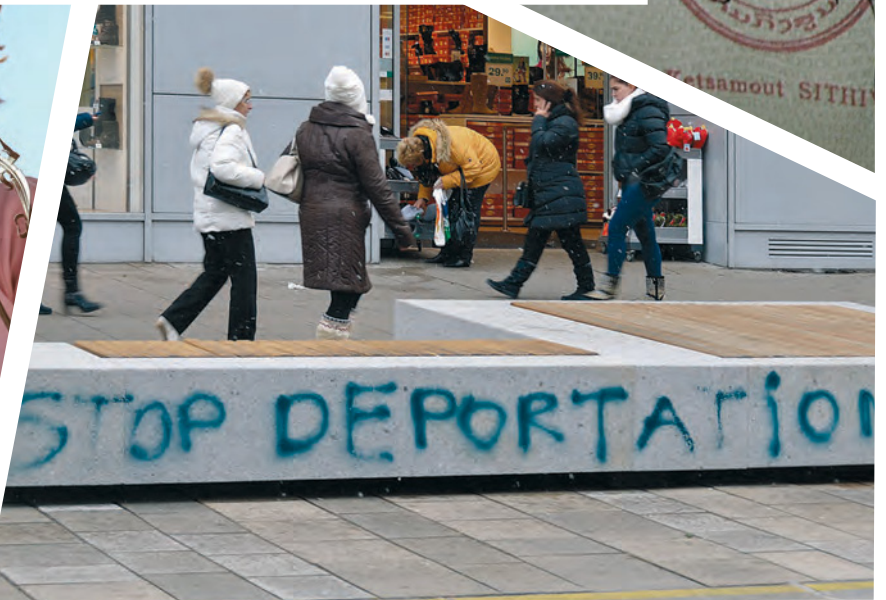 Ketsamout SITHIV
29.
39.
STOP DEPORTATiON